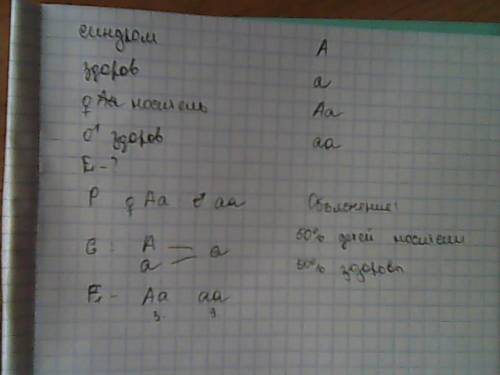 синдром A
здоров a
♀ Aa носитель Aa
♂ здоров aa
F - ?
P ♀ Aa ♂ aa Объяснение:
G : A a
a
50% детей носители
50% здоровы
F - Aa aa